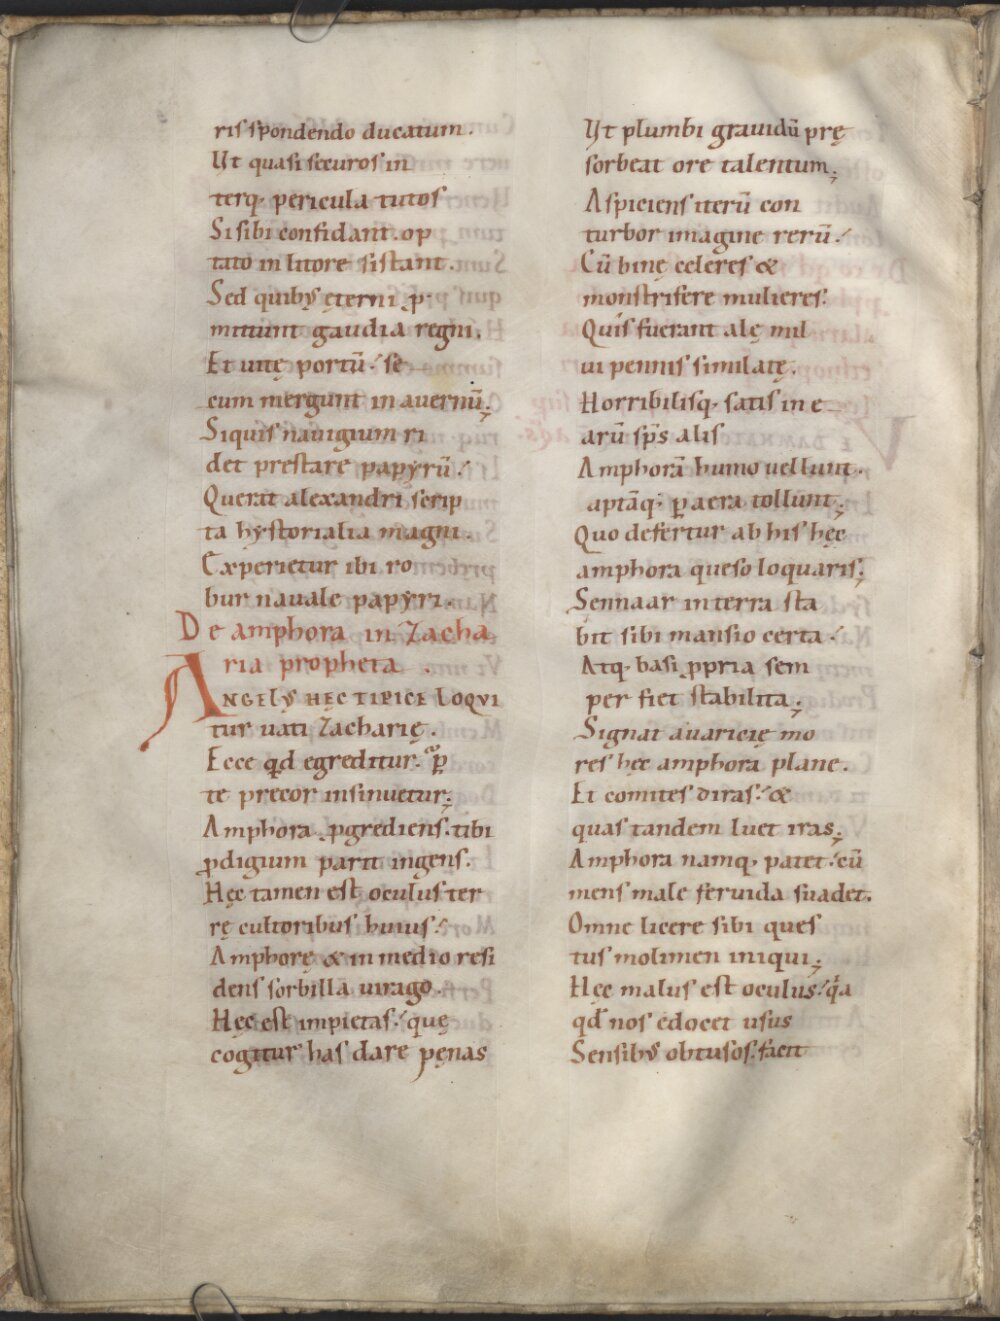 ris spondendo ducatum.
Ut quasi securos in
terq; pericula tutos
Si sibi confidant. op
tato in litore sistant.
Sed quibꝰ ęterni ꝓ
mittunt gaudia regni.
Et uitę portū. se
cum mergunt in auernū;
Siquis nauigium ri
det prestare papyrū.
Querat alexandri scrip
ta hystorialia magni.
Experietur ibi ro
bur nauale papyri.
De amphora in Zacha
ria propheta.
Angelꝰ hęc tipice loqui
tur uati Zacharię.
Ecce qd egreditur. ꝑ
te precor insinuetur;
Amphora ꝓgrediens. tibi
ꝓdigium parit ingens.
Hęc tamen est oculus ter
rę cultoribus huius.
Amphorę & in medio resi
dens sorbilla uirago.
Hęc est impietas. quę
cogitur has dare pęnas
Ut plumbi grauidū prę
sorbeat ore talentum;
Aspiciens iterū con
turbor imagine rerū.
Cū binę celeres &
monstrifere mulieres.
Quis fuerant alę mil
ui pennis similatę.
Horribilisq; satis in e
arū sp̄s alis
Amphorā humo uellunt.
aptāq; ꝑ aera tollunt;
Quo defertur ab his hęc
amphora queso loquaris;
Sennaar in terra sta
bit sibi mansio certa.
Atq; basi ꝓpria sem
per fiet stabilita;
Signat auaricię mo
res hęc amphora plane.
Et comites diras. &
quas tandem luet iras;
Amphora namq; patet. cū
mens male feruida suadet.
Omne licere sibi ques
tus molimen iniqui;
Hęc malus est oculus. qa
qd nos edocet usus
Sensibꝰ obtusos. facit